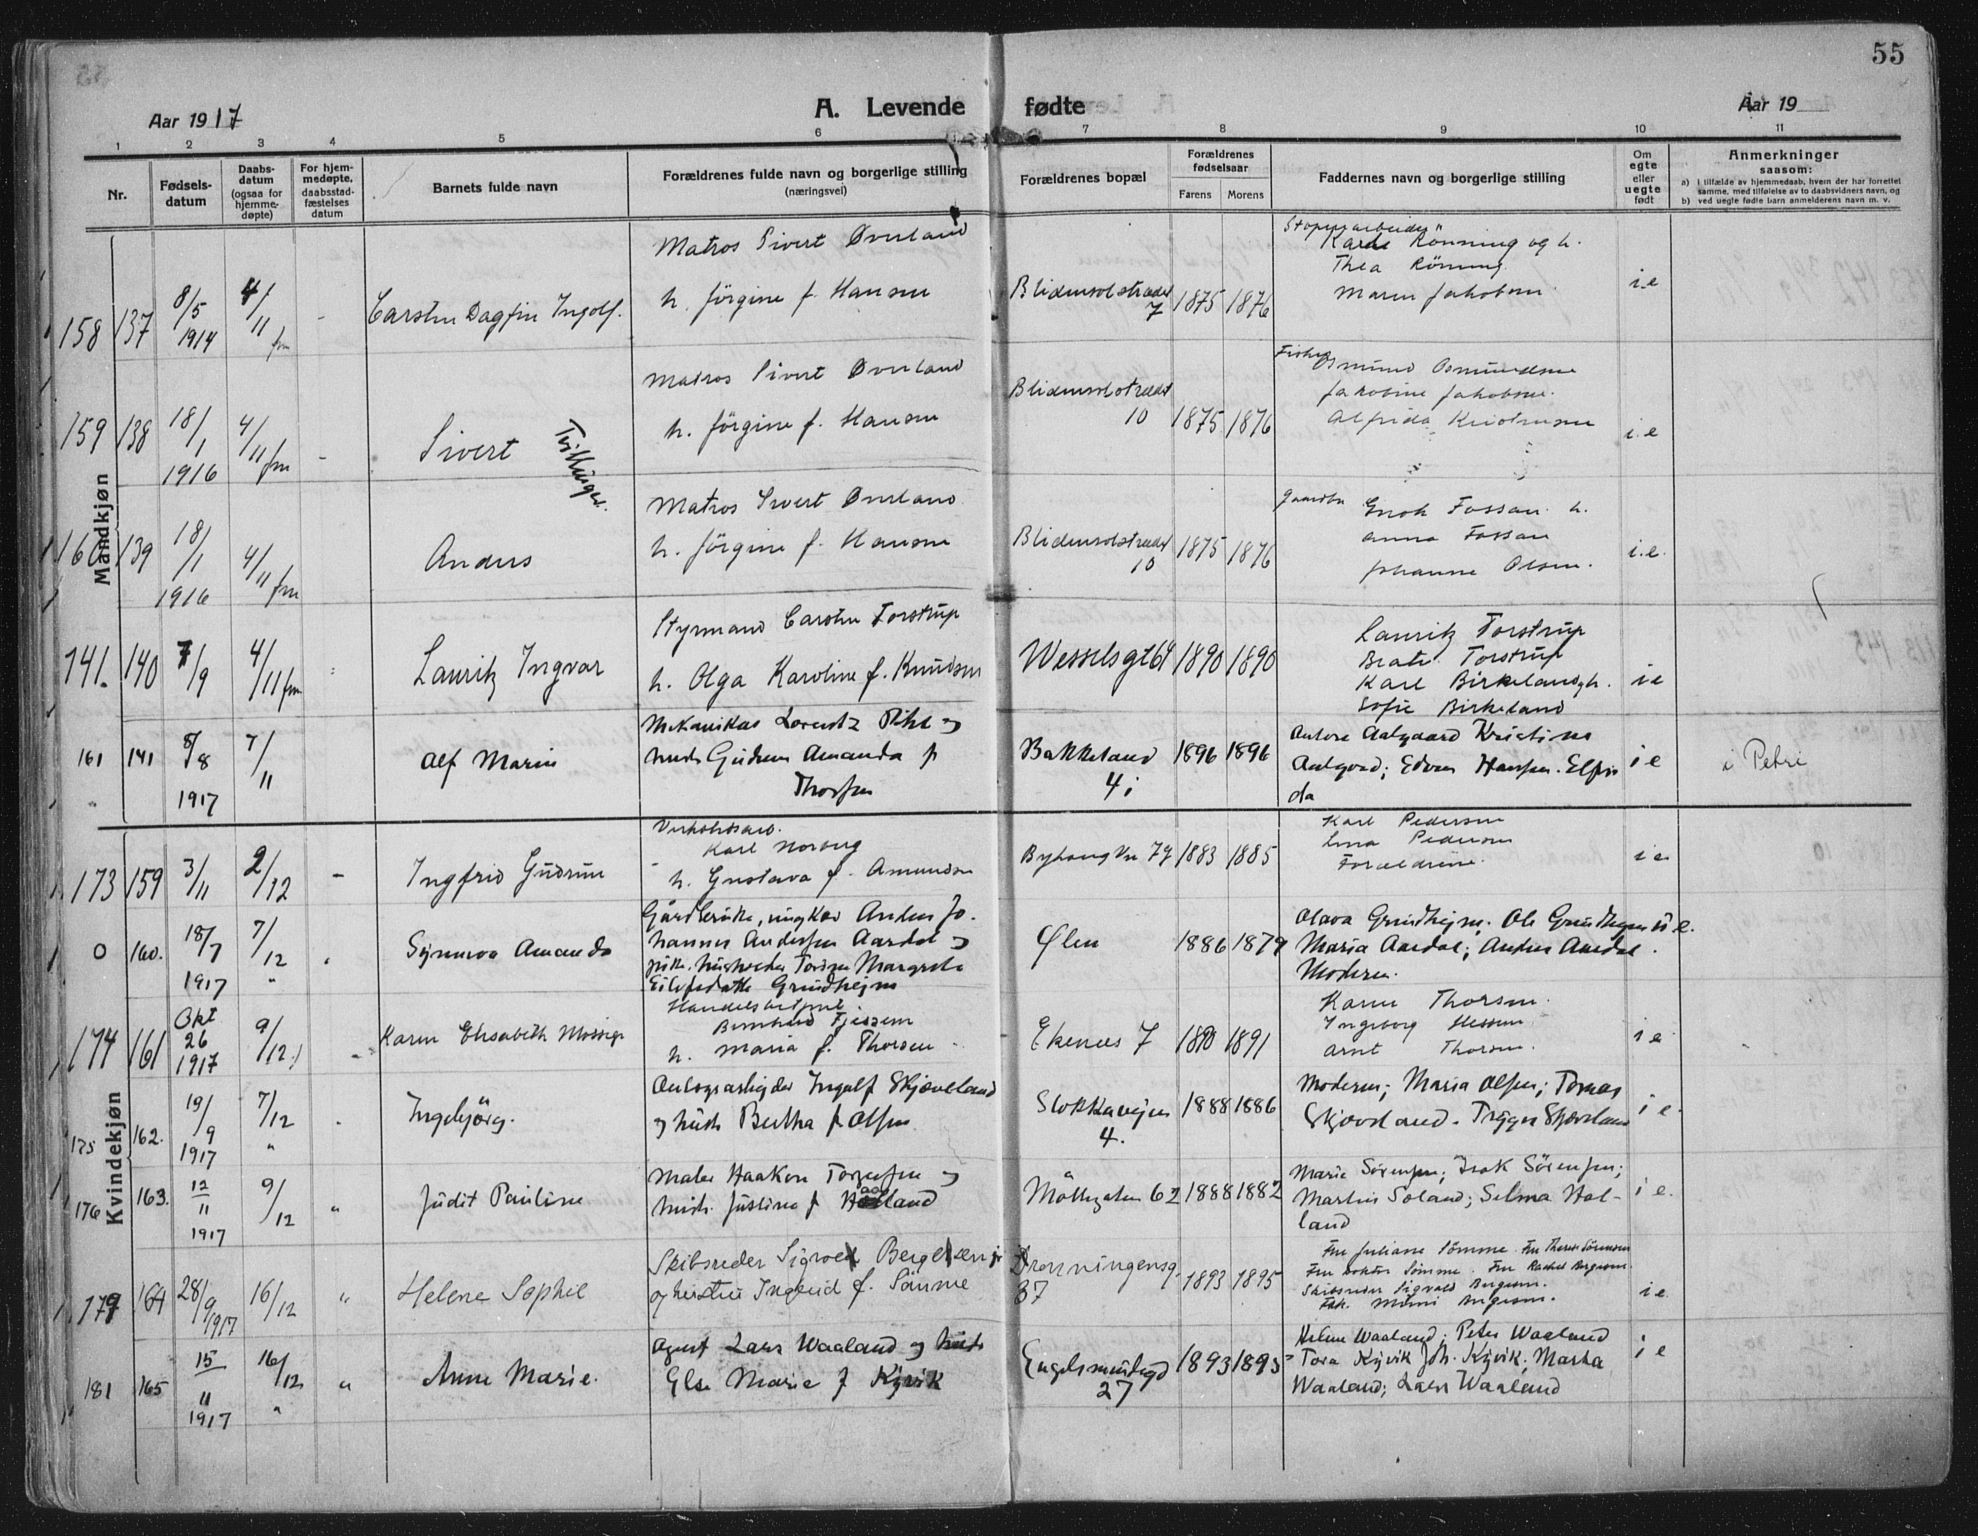 55
Aar 1917
A. Levende fødte
Aar 19
1 2 3 4 5 6 7 8 9 10 11
Nr.
Fødsels-
datum
Daabs-
datum
(ogsaa for
hjemme-
døpte)
For hjem-
medøpte,
daabsstad-
fæstelses
datum
Barnets fulde navn
Forældrenes fulde navn og borgerlige stilling
(næringsvei)
Forældrenes bopæl
Forældrenes
fødselsaar
Farens
Morens
Faddernes navn og borgerlige stilling
Om
egte
eller
uegte
født
Anmerkninger
saasom:
a) i tilfælde av hjemmedaab, hvem der har forrettet
samme, med tilføielse av to daabsvidners navn, og
b) ved uegte fødte barn anmelderens navn m. v.
Mandkjøn
158 137 8/5 1914 4/11 fm -
Carsten Dagfin Ingolf.
Matros Sivert Øverland
h. Jörgine f. Hansen
Blidensolstrædet
7
1875 1876
Rönning og h.
Thea Rönning
Maren Jakobsen
i e
159 138 18/1 1916 4/11 fm -
Sivert
Tvillinger.
Matros Sivert Øverland
h. Jörgine f. Hansen
Blidensolstrædet
10
1875 1876
Fisker
Osmund Osmundsen
Jakobine Jakobsen.
Alfrida Kristensen
i e
160 139 18/1 1916 4/11 fm
Anders
Matros Sivert Øverland
h. Jörgine f. Hansen
Blidensolstrædet
10
1875 1876
Gaardbr
Enok Fossan h.
Anna Fossan
Johanne Olsen.
i. e.
141. 140 7/9 4/11 fm
Lauritz Ingvar
Styrmand Carsten Torstrup
h. Olga Karoline f. Knudsen
Wesselsgt 64
1890 1890
Lauritz Torstrup
Beate Torstrup
Karl Birkeland og h.
Sofie Birkeland
i e
161 141 8/8 1917 7/11
Alf Marin
Mekanikus Lorentz Pihl og
hust. Gudrun Amanda f
Thorsen
Bakkeland
4 i
1896 1896
Antore Aalgaard Kristine
Aalgaard; Edvin Hansen. Elfri
da
i e
i Petri
Kvindekjøn
173 159 3/11 2/12 -
Ingfrid Gudrun
Karl Norberg
h. Gustava f. Amundsen
79
1883 1885
Karl Pedersen
Lina Pedersen
Forældrene.
i e
0 160. 18/7 1917 7/12 "
Synnova Amanda
Anders Jo-
hannes Andersen Aardal og
Margreta
Grindhejm
Ølen
1886 1879
Olava Grindhejm. Ole Grindhejm
u e.
Maria Aardal; Anders Aardal.
Moderen.
174 161 Okt 26 1917 9/12
Karen Elisabeth Mossige
Handelsbetjent.
Bernhard Fjessem
h. Maria f. Thorsen
Ekenes 7
1890 1891
Karen Thorsen.
Ingeborg Hessem
Arnt Thorsen.
i e
175 162. 19/9 1917 7/12 "
Ingebjörg.
Ingolf Skjæveland
og hust. Bertha f Olsen.
Slokkavejen
4.
1888 1886
Moderen; Maria Olsen; Tomas
Skjæveland. Trygve Skjæveland
i e.
176 163. 12/11 1917 9/12 "
Judit Pauline
Maler Haakon Torgersen og
hust. Justine f Haaland
Möllegaten 62
1888 1882
Marie Sørensen; Isak Sörensen;
Martin Soland; Selma Hal-
land
i e.
179 164 28/9 1917 16/12 "
Helene Sophie
Skibsreder Sigvald Bergesen jr
og hustru Ingerid f. Sömme
Dronningensg.
37
1893 1895
Fru Juliane Sømme. Fru Therese Sörensen
Fru Doktor Sømme. Fru Rachel Bergesen.
Skibsreder Sigvald Bergesen.
Frk. Mimi Bergesen.
i e
181 165 15/11 1917 16/12 "
Anne Marie.
Agent Lars Waaland og hust.
Else Marie f Kyvik
Engelsmindegd
27
1893 1895
Helene Waaland; Peter Waaland
Tora Kyvik Joh. Kyvik; Marta
Waaland; Lars Waaland
i e